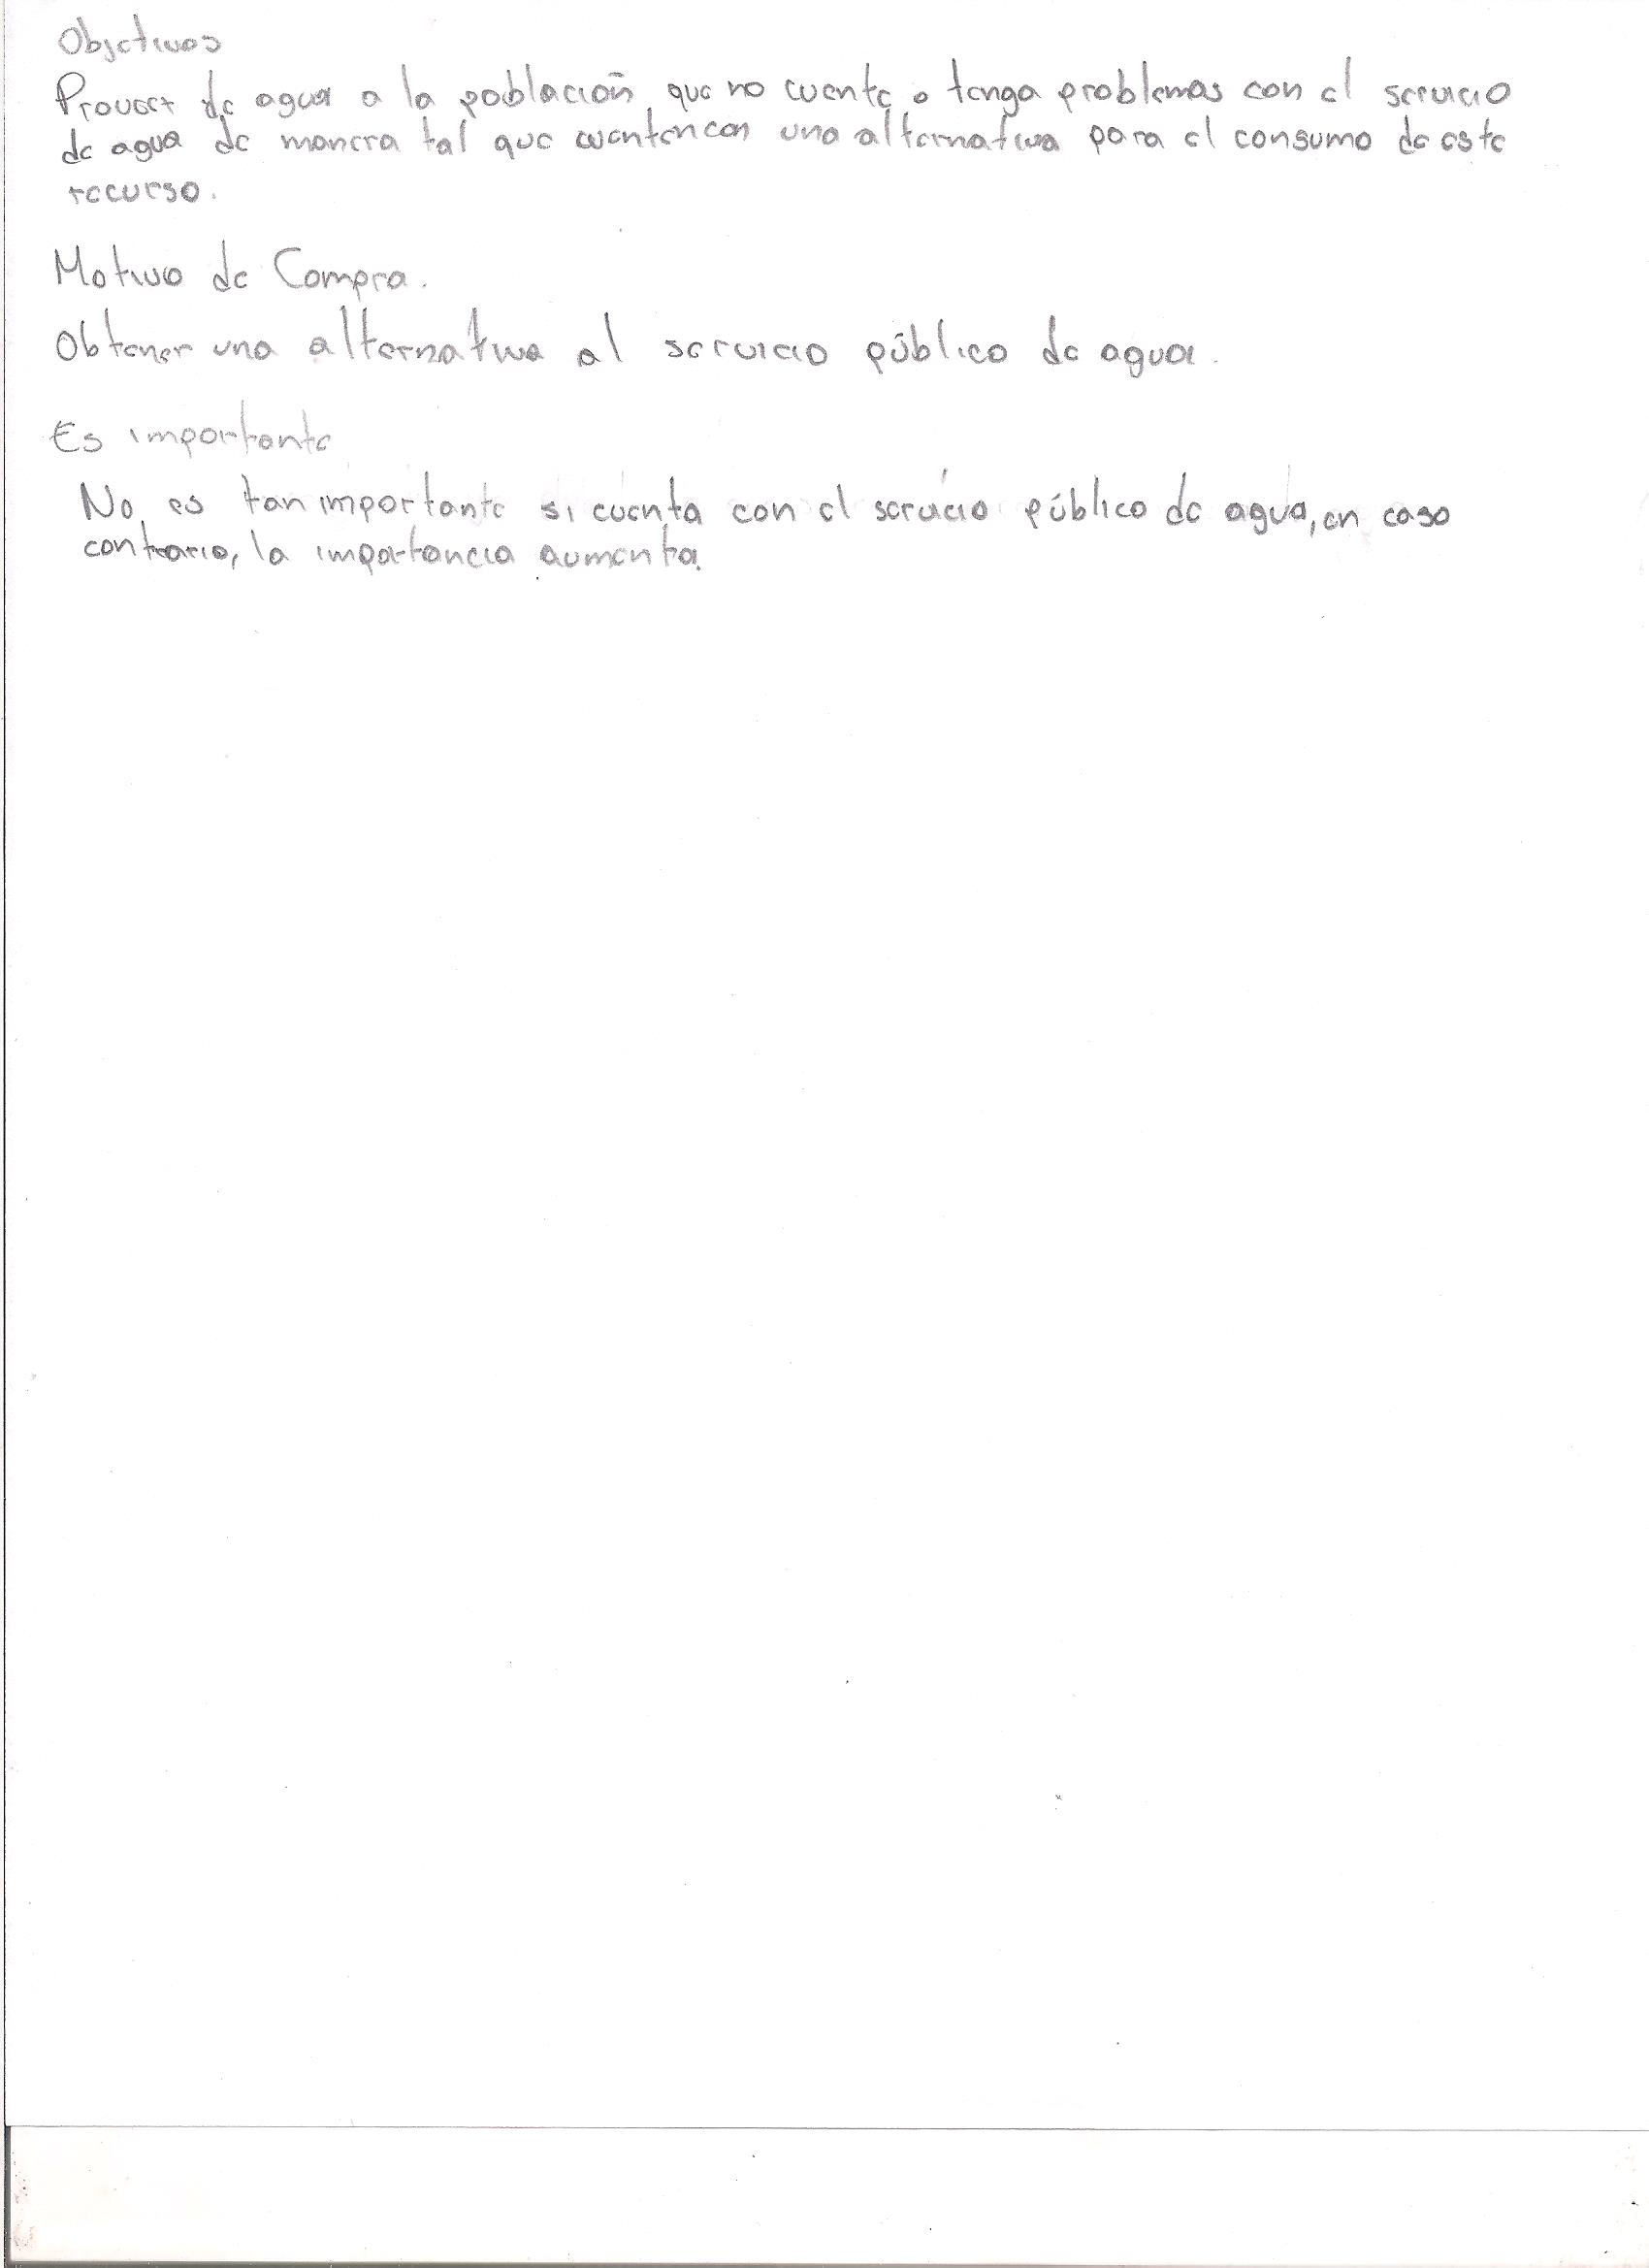 Objetivos
Proveer de agua a la población que no cuente o tenga problemas con el servicio
de agua de manera tal que cuenten con una alternativa para el consumo de este
recurso.
Motivo de Compra.
Obtener una alternativa al servicio público de agua.
Es importante
No es tan importante si cuenta con el servicio público de agua, en caso
contrario, la importancia aumenta.